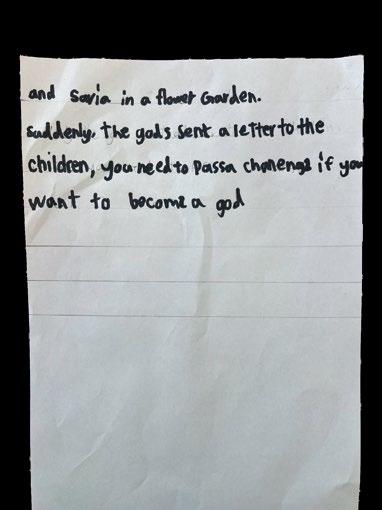 and Savia in a flower Garden.
Suddenly, the gods sent a letter to the
children, you need to Pass a chanenge if you
want to become a god